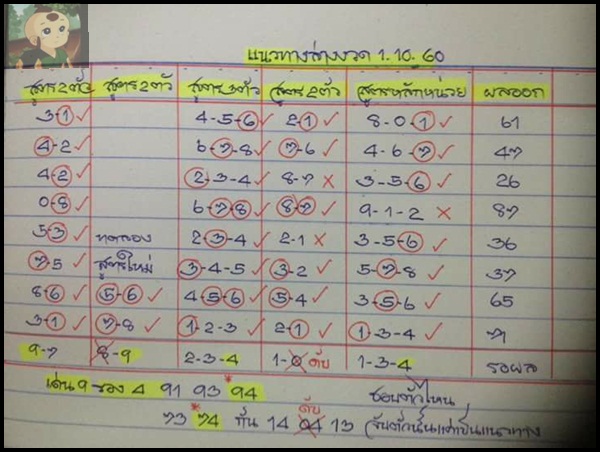 แนวทางล่างงวด 1.10.60
สูตร2ตัว สูตร2ตัว สูตร3ตัว สูตร2ตัว สูตรหลักหน่วย ผลออก
3-1 ✓ 4-5-6 ✓ 2-1 ✓ 8-0-1 ✓ 61
4-2 ✓ 6-7-8 ✓ 7-6 ✓ 4-6-7 ✓ 47
4-2 ✓ 2-3-4 ✓ 8-7 × 3-5-6 ✓ 26
0-8 ✓ 6-7-8 ✓ 8-7 ✓ 9-1-2 × 87
5-3 ✓ ทดลอง 2-3-4 ✓ 2-1 × 3-5-6 ✓ 36
7-5 ✓ สูตรใหม่ 3-4-5 ✓ 3-2 ✓ 5-7-8 ✓ 37
8-6 ✓ 5-6 ✓ 4-5-6 ✓ 5-4 ✓ 3-5-6 ✓ 65
3-1 ✓ 7-8 ✓ 1-2-3 ✓ 2-1 ✓ 1-3-4 ✓ 71
9-7 8-9 2-3-4 1-0 ดับ 1-3-4 รอผล
เด่น 9 รอง 4 91 93 *94 ชอบตัวไหน
73 *74 กั่น 14 04 ดับ 13 จับตัวนั้นแค่เป็นแนวทาง